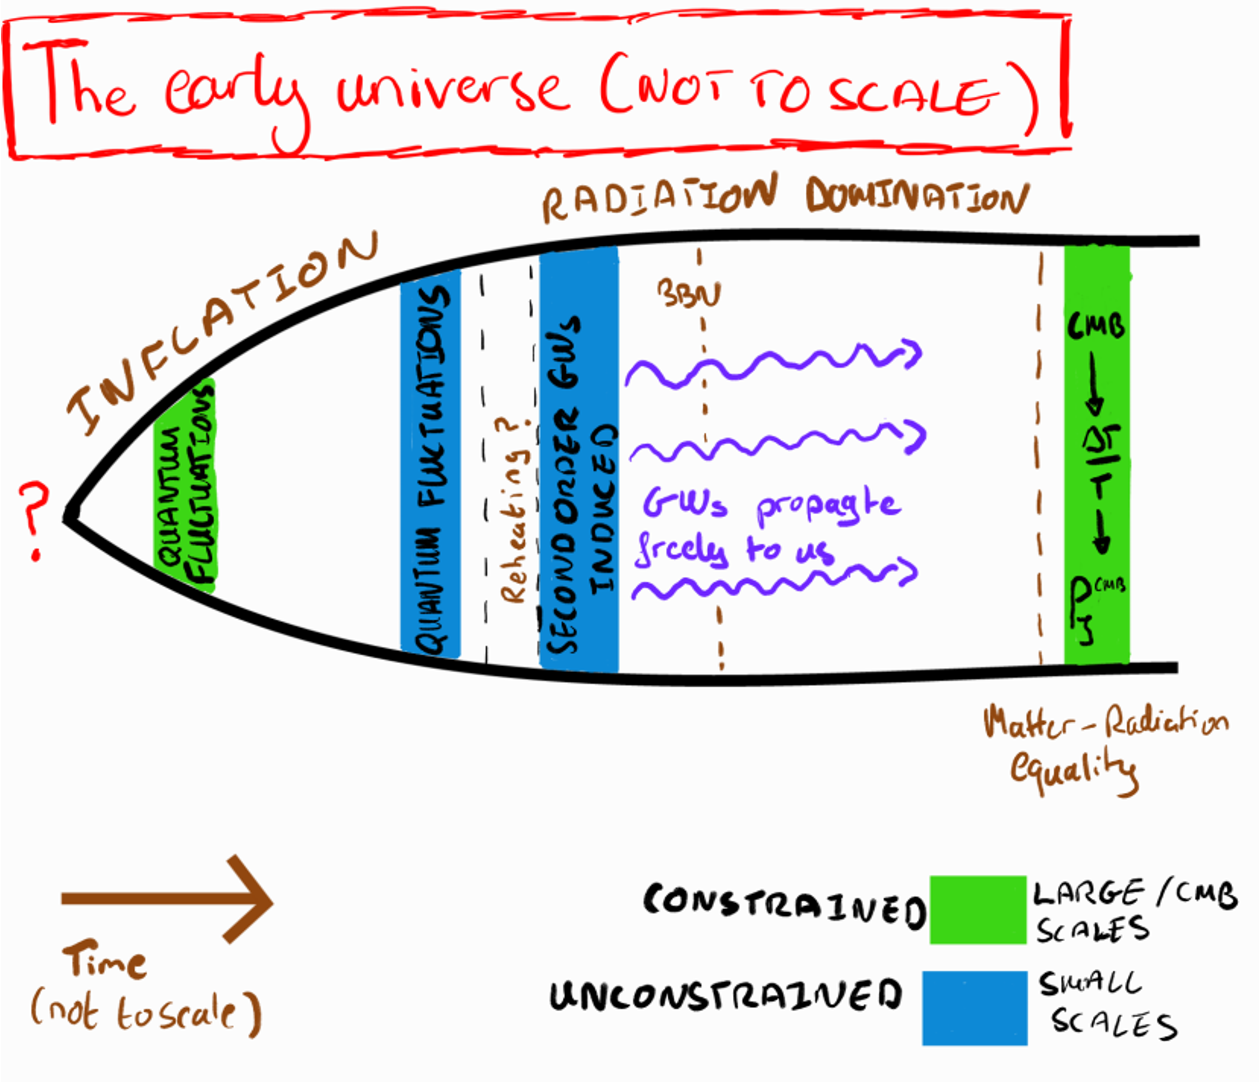 The early universe (NOT TO SCALE)
RADIATION DOMINATION
INFLATION
?
QUANTUM
FLUCTUATIONS
QUANTUM FLUCTUATIONS
Reheating?
SECOND ORDER GWs
INDUCED
BBN
GWs propagte
freely to us
CMB
P CMB
Matter-Radiation
Equality
Time
(not to scale)
CONSTRAINED
LARGE/CMB
SCALES
UNCONSTRAINED
SMALL
SCALES